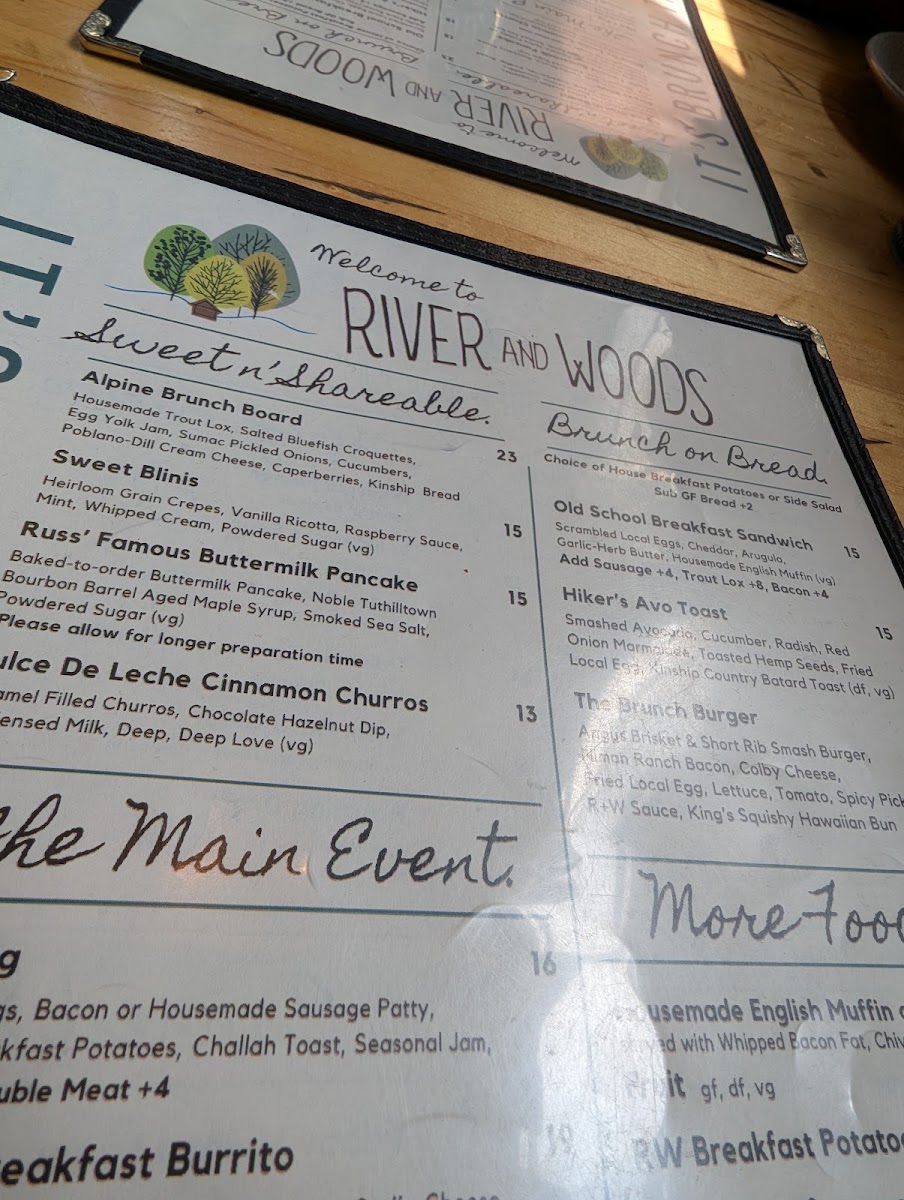 Brunch on Bre
RIVER AND WOODS
Welcome to
IT'S BRUNCH
IT'S
Welcome to
RIVER AND WOODS
Sweet n' Shareable.
Alpine Brunch Board
Housemade Trout Lox, Salted Bluefish Croquettes,
Egg Yolk Jam, Sumac Pickled Onions, Cucumbers,
Poblano-Dill Cream Cheese, Caperberries, Kinship Bread
23
Sweet Blinis
Heirloom Grain Crepes, Vanilla Ricotta, Raspberry Sauce,
Mint, Whipped Cream, Powdered Sugar (vg)
15
Russ' Famous Buttermilk Pancake
Baked-to-order Buttermilk Pancake, Noble Tuthilltown
Bourbon Barrel Aged Maple Syrup, Smoked Sea Salt,
Powdered Sugar (vg)
Please allow for longer preparation time
15
ulce De Leche Cinnamon Churros
amel Filled Churros, Chocolate Hazelnut Dip,
ensed Milk, Deep, Deep Love (vg)
13
he Main Event.
g
16
gs, Bacon or Housemade Sausage Patty,
kfast Potatoes, Challah Toast, Seasonal Jam,
uble Meat +4
eakfast Burrito
19
Brunch on Bread.
Choice of House Breakfast Potatoes or Side Salad
Sub GF Bread +2
Old School Breakfast Sandwich
15
Scrambled Local Eggs, Cheddar, Arugula,
Garlic-Herb Butter, Housemade English Muffin (vg)
Add Sausage +4, Trout Lox +8, Bacon +4
Hiker's Avo Toast
15
Smashed Avocado, Cucumber, Radish, Red
Onion Marmalade, Toasted Hemp Seeds, Fried
Local Egg, Kinship Country Batard Toast (df, vg)
The Brunch Burger
Angus Brisket & Short Rib Smash Burger,
Niman Ranch Bacon, Colby Cheese,
Fried Local Egg, Lettuce, Tomato, Spicy Pick
R+W Sauce, King's Squishy Hawaiian Bun
More Foo
usemade English Muffin
ed with Whipped Bacon Fat, Chiv
Fruit gf, df, vg
RW Breakfast Potato